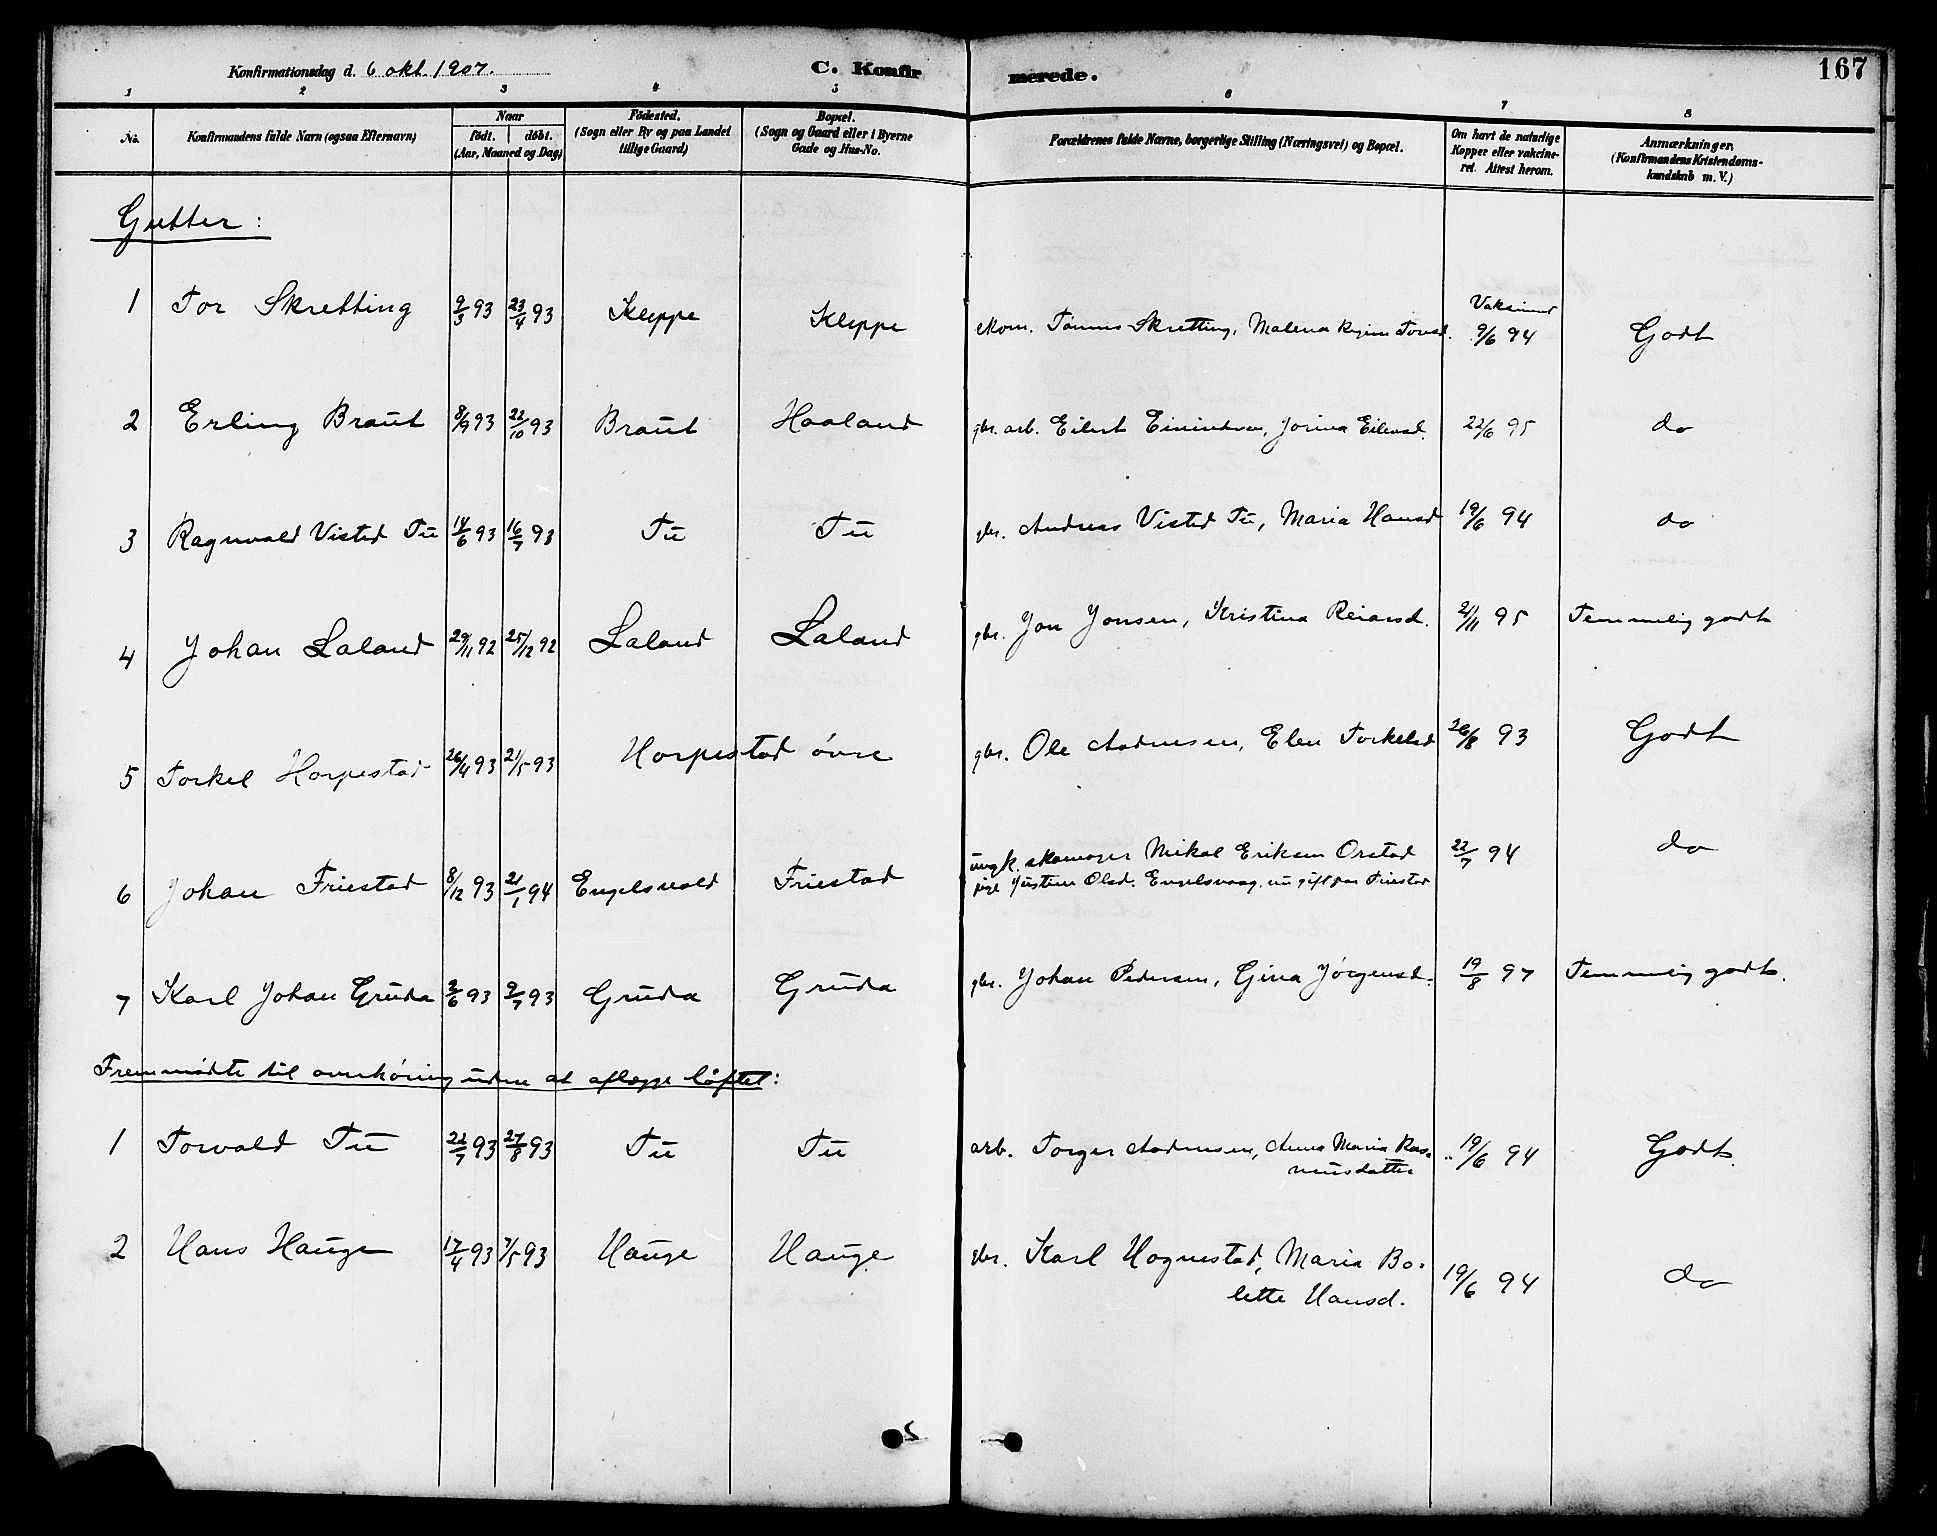 Konfirmationsdag d. 6 okt. 1907. C. Konfirmerede. 167
1 2 3 4 5 6 7 8
No. Konfirmandens fulde Navn (ogsaa Efternavn) Naar født. døbt. (Aar, Maaned og Dag) Fødested. (Sogn eller By og paa Landet tillige Gaard) Bopæl. (Sogn og Gaard eller i Byerne Gade og Hus-No. Forældrenes fulde Navne, borgerlige Stilling (Næringsvei) og Bopæl. Om havt de naturlige Kopper eller vakcineret. Attest herom. Anmærkninger. (Konfirmandens Kristendomskundskab m. V.)
Gutter:
1 Tor Skretting 9/3 93 23/4 93 Kleppe Kleppe skom. Tønnes Skretting, Malena Regine Toresd. Vaksinert 9/6 94 Godt
2 Erling Braut 8/9 93 22/10 93 Braut Haaland gbr. arb. Eilert Jorina Eilevsd. 22/6 95 do
3 Ragnvald Visted Tu 14/6 93 16/7 93 Tu Tu gbr. Andreas Visted Tu, Maria Hansd 19/6 94 do
4 Johan Laland 29/11 92 25/12 92 Laland Laland gbr. Jon Jonsen, Kristina Reiarsd. 2/11 95 Temmelig godt
5 Torkel Horpestad 26/4 93 21/5 93 Horpestad øvre gbr. Ole Andresen, Elen Torkelsd 26/8 93 Godt
6 Johan Friestad 8/12 93 21/1 94 Engelsvold Friestad ungk. skomager Mikal Eriksen Orstad 22/7 94 do
pige Justine Olsd. Engelsvaag, nu gift paa Friestad
7 Karl Johan Gruda 2/6 93 9/7 93 Gruda Gruda gbr. Johan Pedersen, Gina Jørgensd. 19/8 97 Temmelig godt.
Fremmødte til overhøring uden at aflægge løftet:
1 Torvald Tu 22/7 93 27/8 93 Tu Tu arb. Torger Andresen, Anna Maria Ras- 19/6 94 Godt.
musdatter
2 Hans Hauge 17/4 93 7/5 93 Hauge Hauge gbr. Karl Hognestad, Maria Bo- 19/6 94 do
lette Hansd.